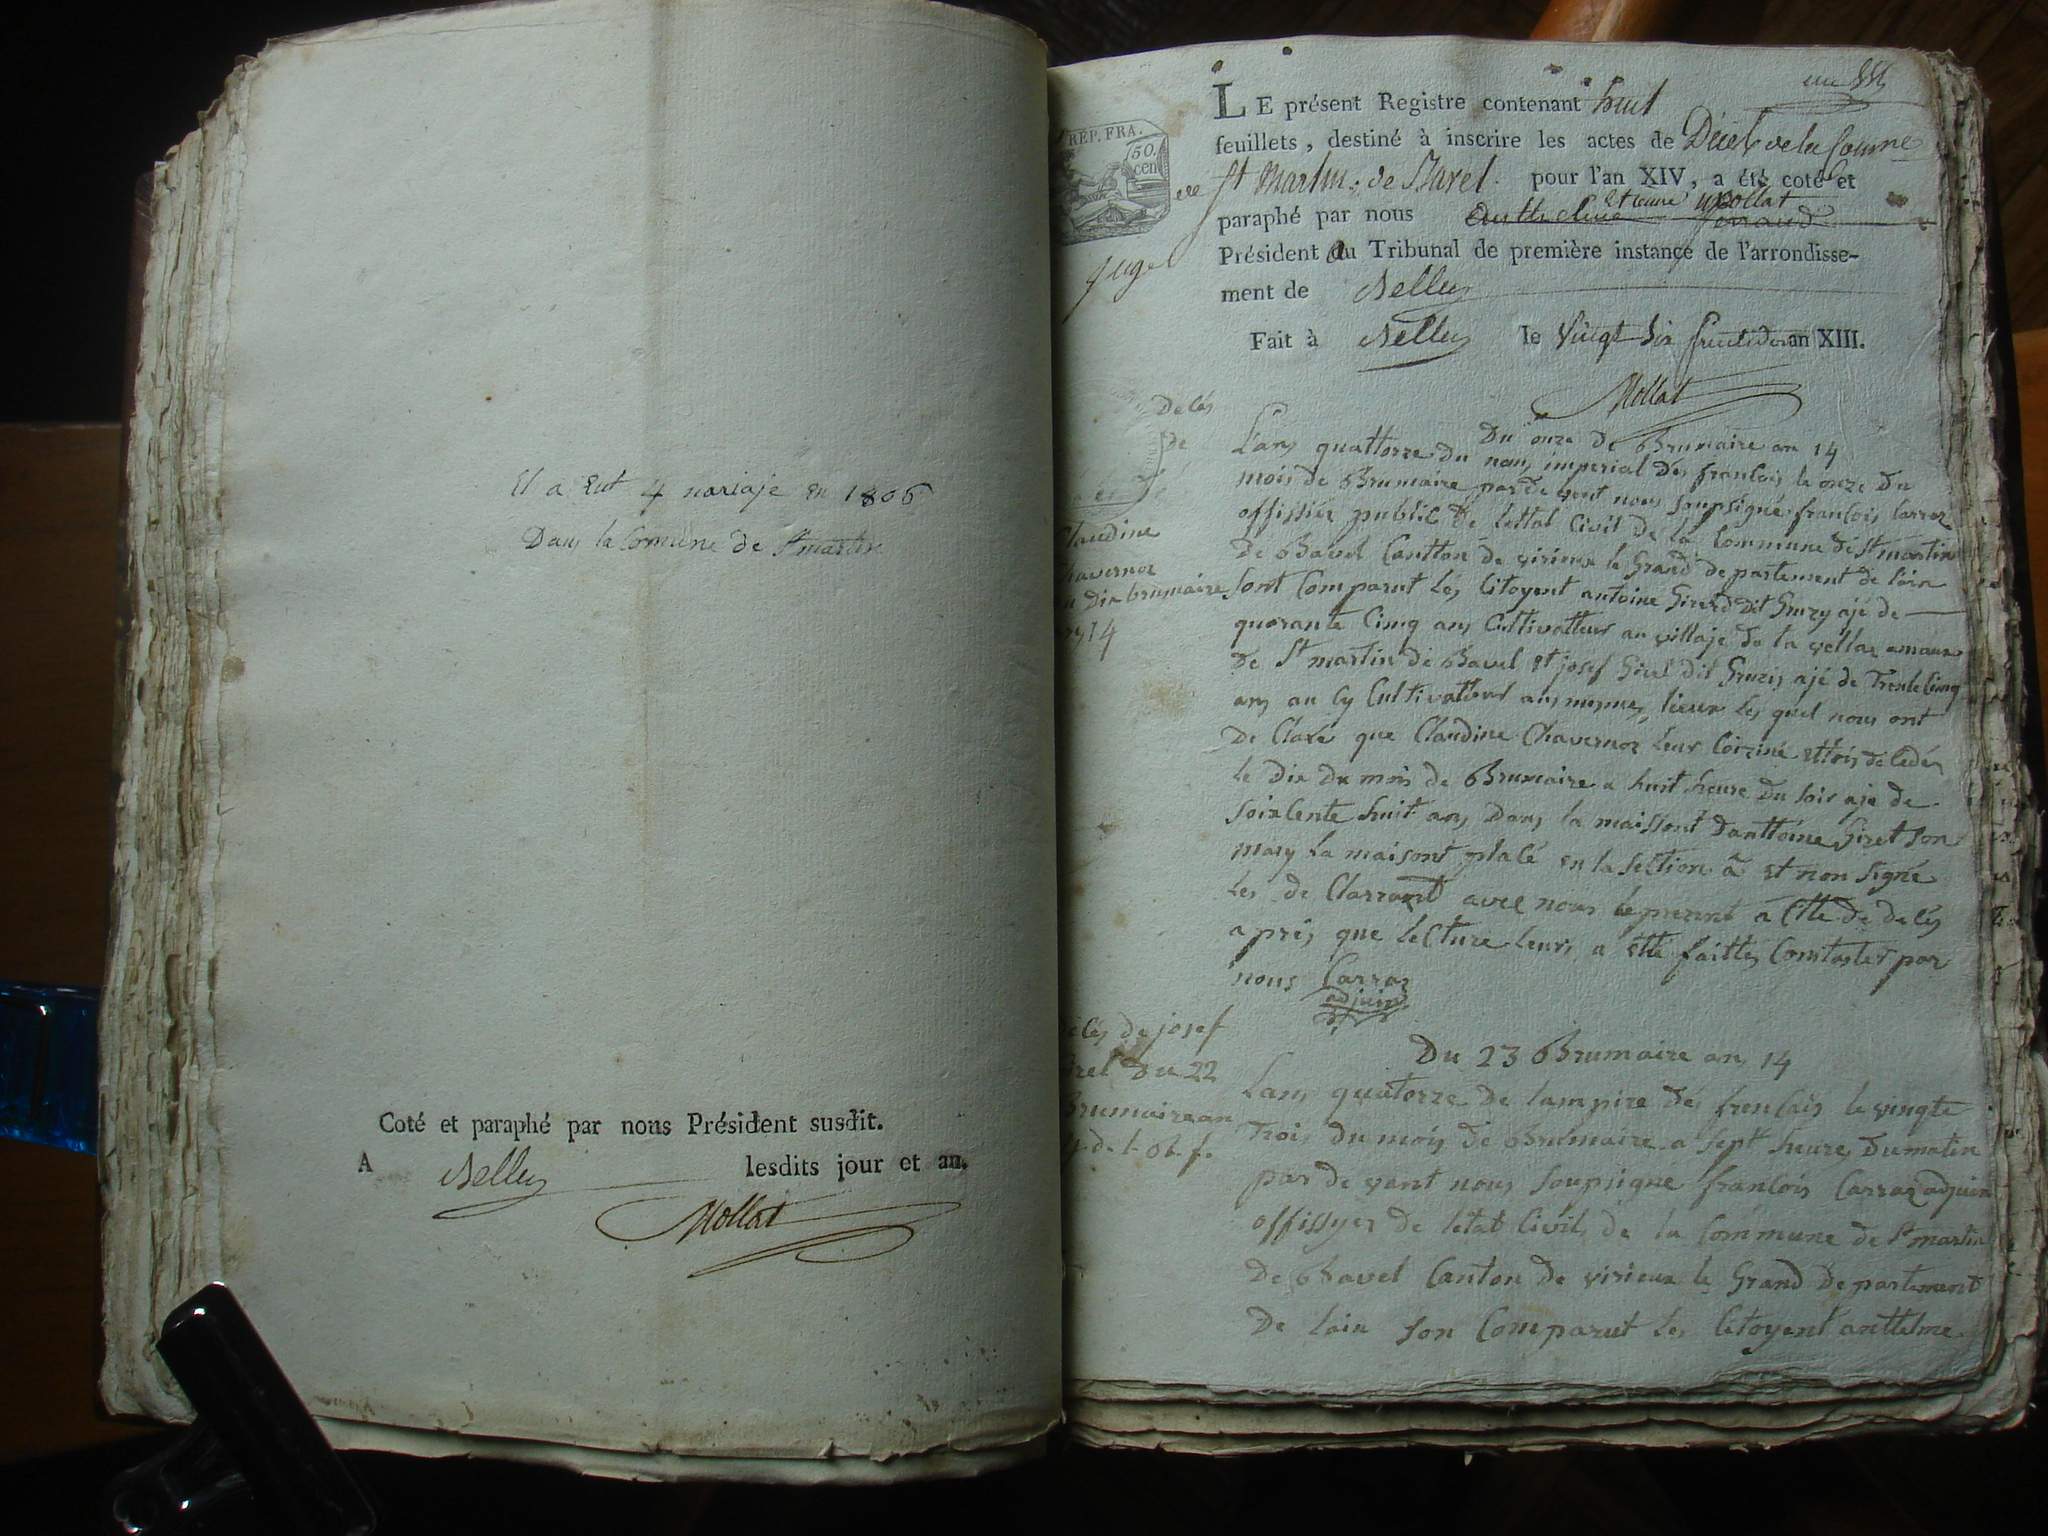 Il a Eut 4 mariaje en 1806
Dans la Comune de St martin
Coté et paraphé par nous Président susdit.
A Belley lesdits jour et an.
Mollat
REP. FRA.
50.
cen
LE présent Registre contenant huit
feuillets, destiné à inscrire les actes de Décès de la Comne
de St Martin de Bavel pour l'an XIV, a été coté et
paraphé par nous Anthelme Etienne Mollat
juge
Président au Tribunal de première instance de l'arrondisse-
ment de Belley
Fait à Belley le Vingt Six fructidor an XIII.
Mollat
Decés
de
Claudine
Chavernoz
du Dix brumaire
an 14
Du onze de Brumaire an 14
L'ans quattorze du nous imperial des francois le onze du
mois de Brumaire par de vent nous soupsigné francois Carraz
offissier public de lettat Civil de la Commune de St martin
De Bavel Cantton de virieux le Grand departement de lain
sont Comparut les Citoyent antoine Girerd dit Gruzy ajé de
quarante Cinq ans Cultivatteur au village de la vellaz amaux
De St martin de Bavel et josef Girel dit Gruzis ajé de Trente Cinq
ans au Cy Cultivatteur aus mesmes lieux les quel nous ont
De Claré que Claudine Chavernoz leur Coizine ettois de Cedés
le Dix du mois de Brumaire a huit heure Du soir aje de
soixsente huit ans Dans la maissont danttoine Giret son
mary la maisont placé en la section a et non signé
les de Clarrant avec nous le present a Ctte de deCés
apres que leCture leurs a etté faittes Constaster par
nous Carraz
adjuin
decés de josef
Girel du 22
Brumaire an
Du 23 Brumaire an 14
Lans quatorze de lampire des frencais le vingte
Trois du mois de Brumaire a sept heures Dumatin
par de vent nous soupsigne francois Carraz adjuin
offissyer de letat Civil de la Commune de St martin
De Bavel Canton de virieux le Grand De partement
De lain son Comparut les Citoyent anttelme